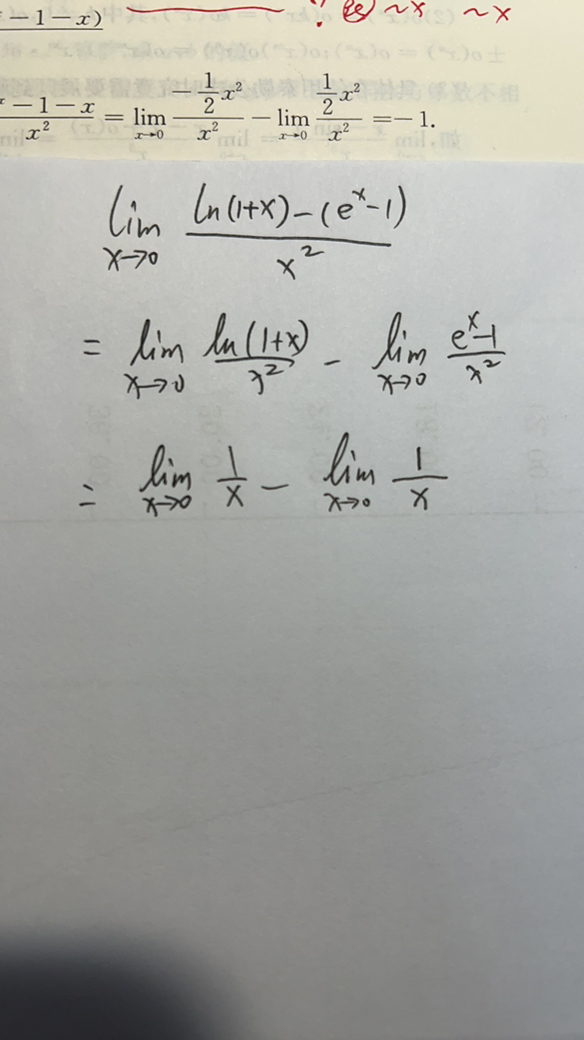 －1－x) ~x ~x
－1－x / x² = lim x→0 －1/2 x² / x² － lim x→0 1/2 x² / x² =－1.
lim x→0 ln(1+x)-(eˣ-1) / x²
= lim x→0 ln(1+x) / x² - lim x→0 eˣ-1 / x²
= lim x→0 1/x - lim x→0 1/x